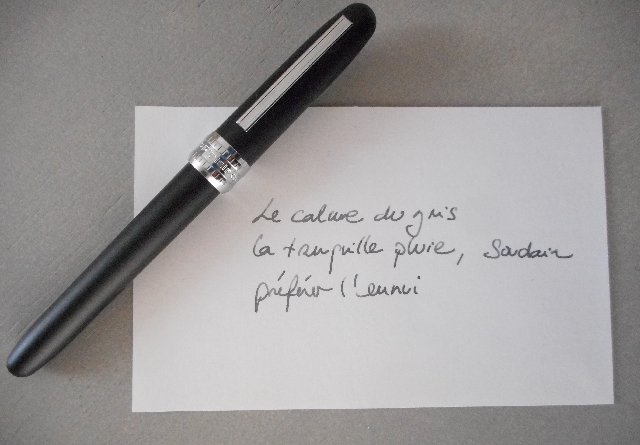 Le calme du gris
la tranquille pluie, Soudain
préférer l'ennui